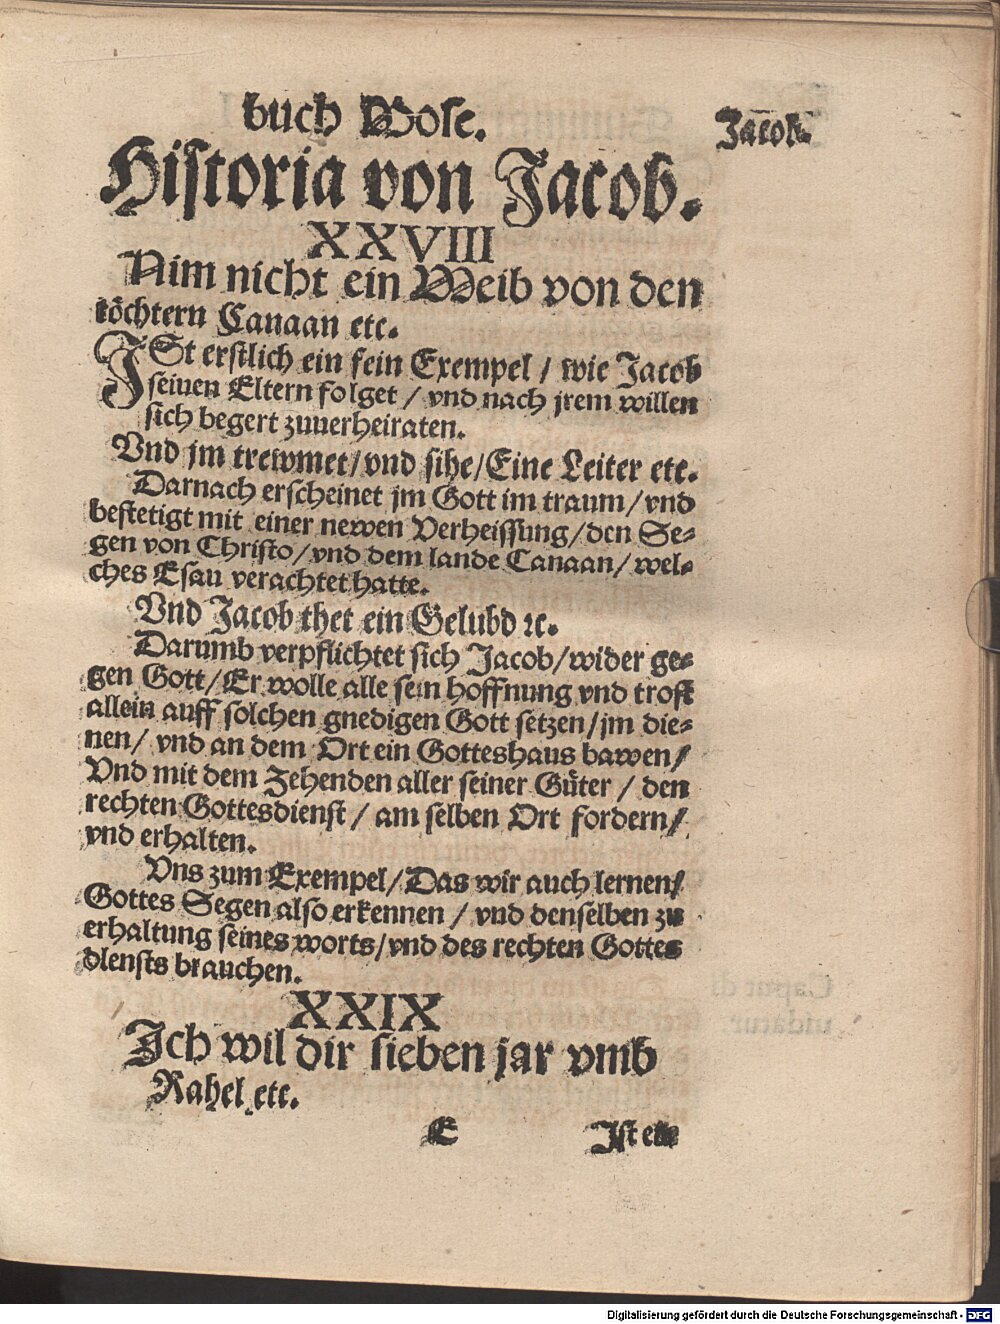 buch Mose.
Jacob.
Historia von Jacob.
XXVIII
Nim nicht ein Weib von den
töchtern Canaan etc.
JSt erstlich ein fein Exempel / wie Jacob
seinen Eltern folget / vnd nach jrem willen
sich begert zuuerheiraten.
Vnd jm trewmet/vnd sihe/Eine Leiter etc.
Darnach erscheinet jm Gott im traum/vnd
bestetigt mit einer newen Verheissung/den Se-
gen von Christo/vnd dem lande Canaan/ wel-
ches Esau verachtet hatte.
Vnd Jacob thet ein Gelubd ꝛc.
Darumb verpflichtet sich Jacob/wider ge-
gen Gott/Er wolle alle sein hoffnung vnd trost
allein auff solchen gnedigen Gott setzen/jm die-
nen/ vnd an dem Ort ein Gotteshaus bawen/
Vnd mit dem Zehenden aller seiner Güter / den
rechten Gottesdienst / am selben Ort fordern/
vnd erhalten.
Vns zum Exempel/Das wir auch lernen/
Gottes Segen also erkennen / vnd denselben zu
erhaltung seines worts/vnd des rechten Gottes
dIensts brauchen.
XXIX
Ich wil dir sieben jar vmb
Rahel etc.
E
Ist ein
Digitalisierung gefördert durch die Deutsche Forschungsgemeinschaft - DFG